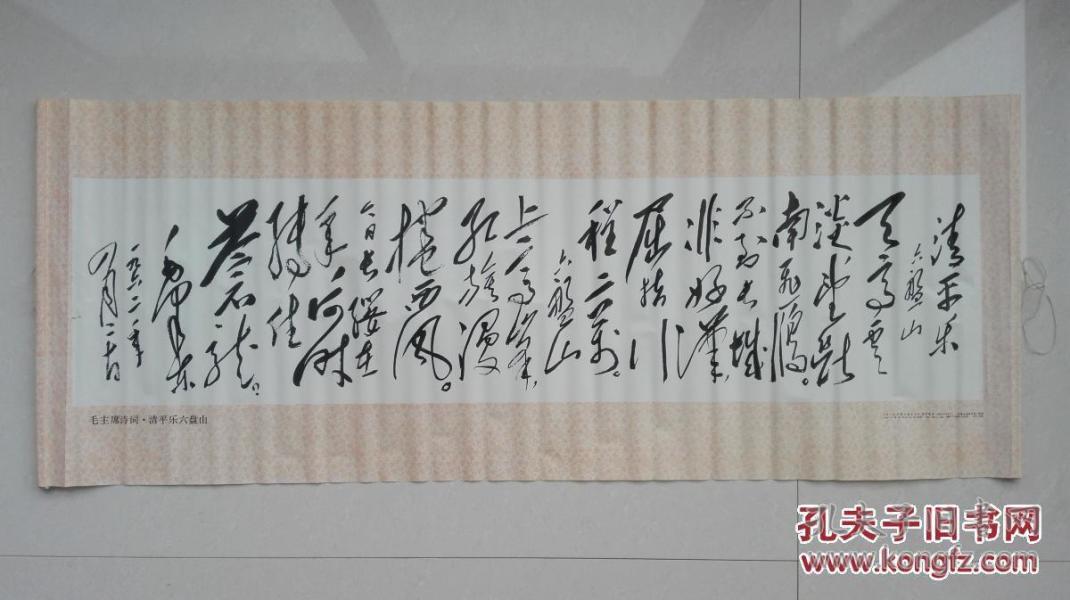 清平乐
六盤山
天高雲
淡望斷
南飛雁。
不到长城
非好漢，
屈指行
程二万。
六盤山
上高峰，
紅旗漫
捲西風。
今日长纓在
手，何时
縛住
蒼龍。
毛泽东
一九六二年
四月二十日
毛主席诗词·清平乐六盘山
孔夫子旧书网
www.kongfz.com